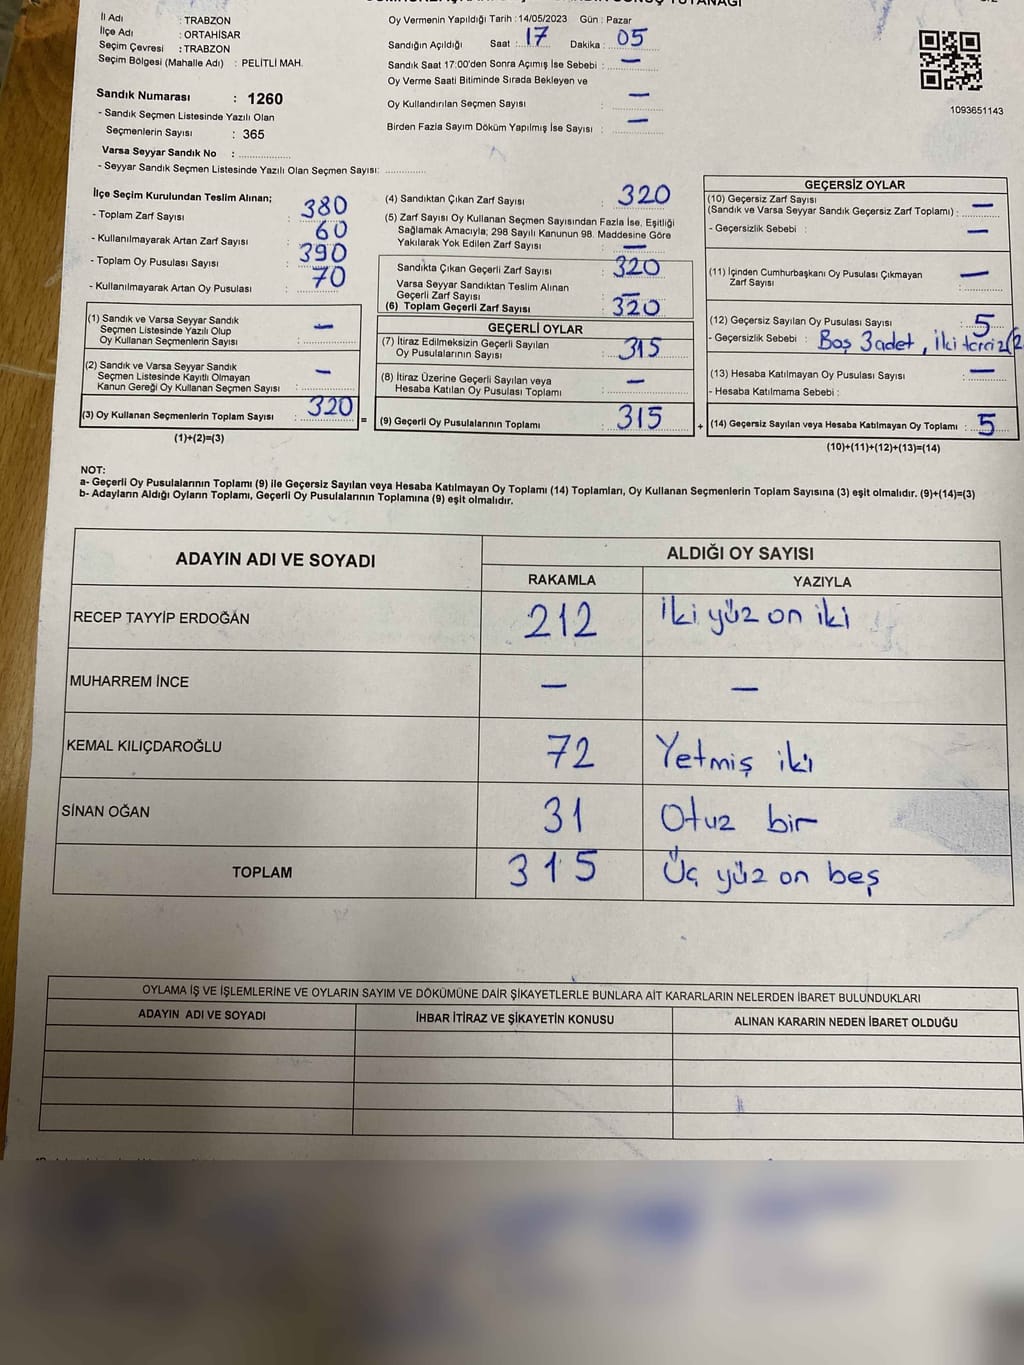 İl Adı : TRABZON
İlçe Adı : ORTAHİSAR
Seçim Çevresi : TRABZON
Seçim Bölgesi (Mahalle Adı) : PELİTLİ MAH.
Sandık Numarası : 1260
- Sandık Seçmen Listesinde Yazılı Olan
Seçmenlerin Sayısı : 365
Varsa Seyyar Sandık No :
- Seyyar Sandık Seçmen Listesinde Yazılı Olan Seçmen Sayısı:
Oy Vermenin Yapıldığı Tarih : 14/05/2023 Gün : Pazar
Sandığın Açıldığı Saat : 17 Dakika : 05
Sandık Saat 17:00'den Sonra Açımış İse Sebebi : —
Oy Verme Saati Bitiminde Sırada Bekleyen ve
Oy Kullandırılan Seçmen Sayısı : —
Birden Fazla Sayım Döküm Yapılmış İse Sayısı : —
1093651143
İlçe Seçim Kurulundan Teslim Alınan;
- Toplam Zarf Sayısı : 380
- Kullanılmayarak Artan Zarf Sayısı : 60
- Toplam Oy Pusulası Sayısı : 390
- Kullanılmayarak Artan Oy Pusulası : 70
(1) Sandık ve Varsa Seyyar Sandık
Seçmen Listesinde Yazılı Olup
Oy Kullanan Seçmenlerin Sayısı : —
(2) Sandık ve Varsa Seyyar Sandık
Seçmen Listesinde Kayıtlı Olmayan
Kanun Gereği Oy Kullanan Seçmen Sayısı : —
(3) Oy Kullanan Seçmenlerin Toplam Sayısı : 320 =
(1)+(2)=(3)
(4) Sandıktan Çıkan Zarf Sayısı : 320
(5) Zarf Sayısı Oy Kullanan Seçmen Sayısından Fazla İse, Eşitliği
Sağlamak Amacıyla; 298 Sayılı Kanunun 98. Maddesine Göre
Yakılarak Yok Edilen Zarf Sayısı : —
Sandıkta Çıkan Geçerli Zarf Sayısı : 320
Varsa Seyyar Sandıktan Teslim Alınan
Geçerli Zarf Sayısı : —
(6) Toplam Geçerli Zarf Sayısı : 320
GEÇERLİ OYLAR
(7) İtiraz Edilmeksizin Geçerli Sayılan
Oy Pusulalarının Sayısı : 315
(8) İtiraz Üzerine Geçerli Sayılan veya
Hesaba Katılan Oy Pusulası Toplamı : —
(9) Geçerli Oy Pusulalarının Toplamı : 315 +
GEÇERSİZ OYLAR
(10) Geçersiz Zarf Sayısı
(Sandık ve Varsa Seyyar Sandık Geçersiz Zarf Toplamı) : —
- Geçersizlik Sebebi : —
(11) İçinden Cumhurbaşkanı Oy Pusulası Çıkmayan
Zarf Sayısı : —
(12) Geçersiz Sayılan Oy Pusulası Sayısı : 5
- Geçersizlik Sebebi : Boş 3 adet, İki
(13) Hesaba Katılmayan Oy Pusulası Sayısı : —
- Hesaba Katılmama Sebebi :
(14) Geçersiz Sayılan veya Hesaba Katılmayan Oy Toplamı : 5
(10)+(11)+(12)+(13)=(14)
NOT:
a- Geçerli Oy Pusulalarının Toplamı (9) ile Geçersiz Sayılan veya Hesaba Katılmayan Oy Toplamı (14) Toplamları, Oy Kullanan Seçmenlerin Toplam Sayısına (3) eşit olmalıdır. (9)+(14)=(3)
b- Adayların Aldığı Oyların Toplamı, Geçerli Oy Pusulalarının Toplamına (9) eşit olmalıdır.
ADAYIN ADI VE SOYADI
ALDIĞI OY SAYISI
RAKAMLA YAZIYLA
RECEP TAYYİP ERDOĞAN 212 İki yüz on iki
MUHARREM İNCE — —
KEMAL KILIÇDAROĞLU 72 Yetmiş iki
SİNAN OĞAN 31 Otuz bir
TOPLAM 315 Üç yüz on beş
OYLAMA İŞ VE İŞLEMLERİNE VE OYLARIN SAYIM VE DÖKÜMÜNE DAİR ŞİKAYETLERLE BUNLARA AİT KARARLARIN NELERDEN İBARET BULUNDUKLARI
ADAYIN ADI VE SOYADI İHBAR İTİRAZ VE ŞİKAYETİN KONUSU ALINAN KARARIN NEDEN İBARET OLDUĞU